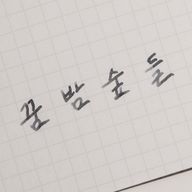 꿈 밤 숲 들